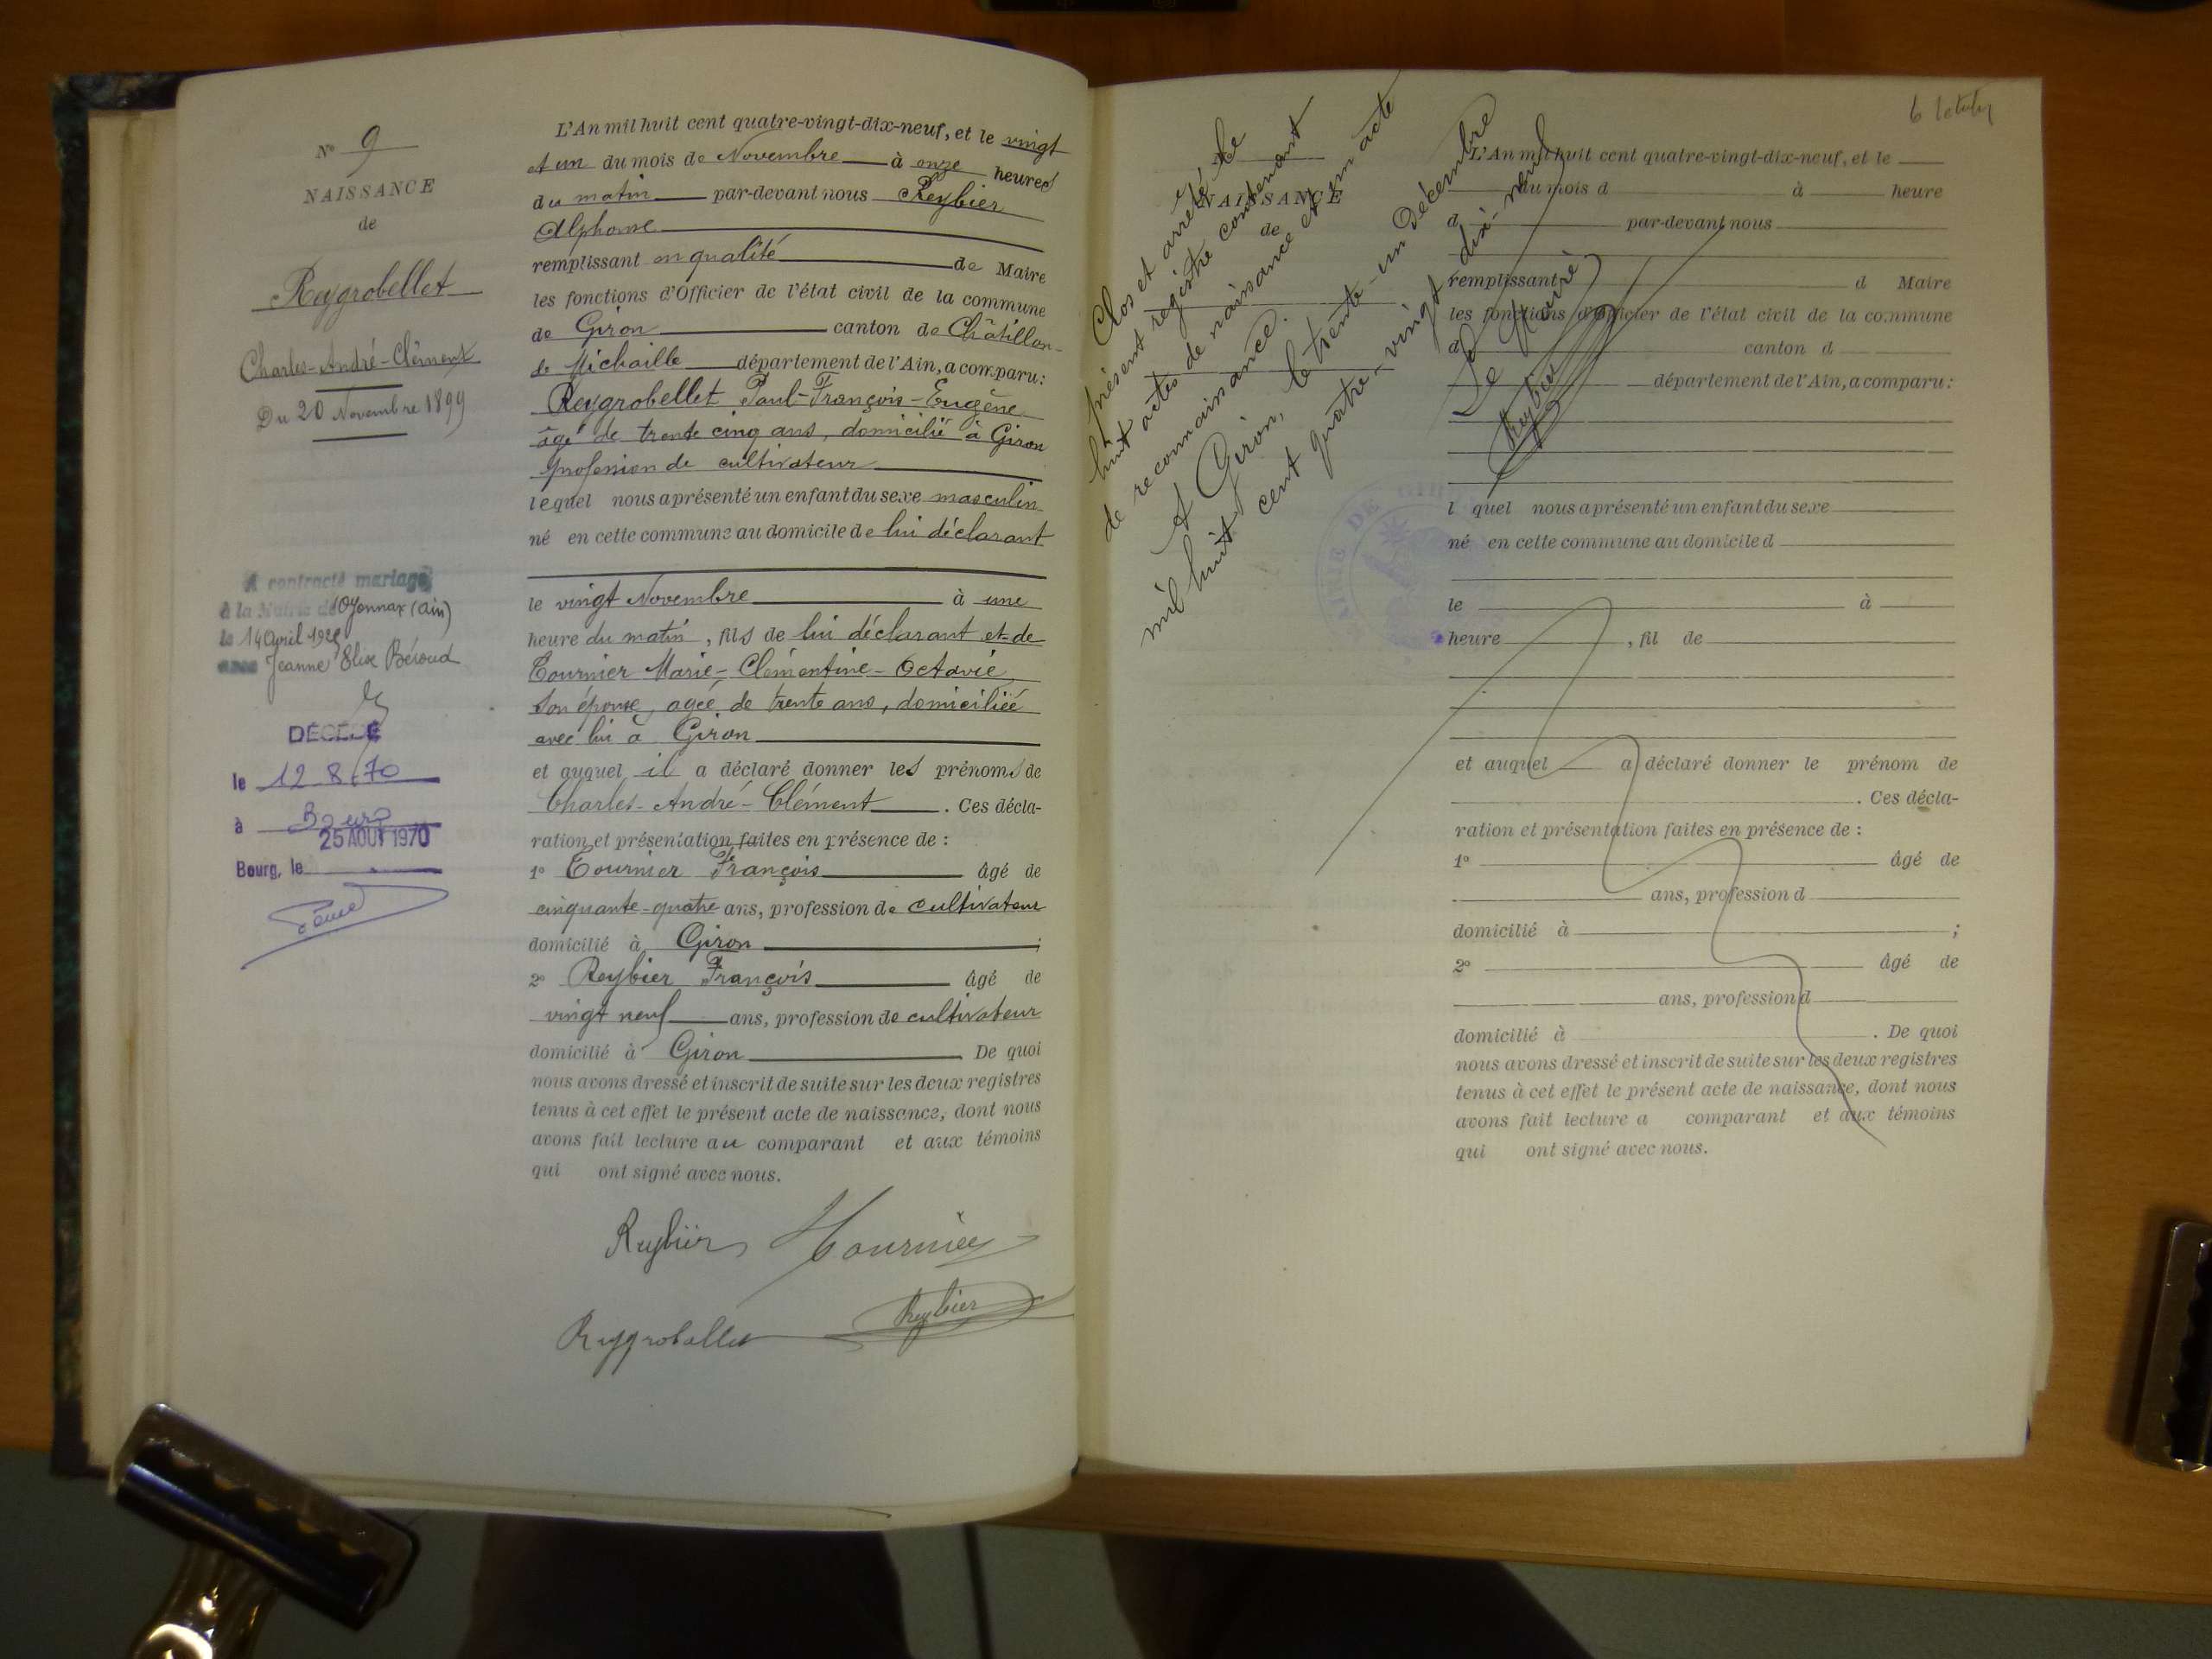 N° 9
NAISSANCE
de
Reygrobellet
Charles-André-Clément
Du 20 Novembre 1899
A contracté mariage
à la Mairie de Oyonnax (Ain)
le 14 Avril 192
avec Jeanne Elise Béroud
DÉCÉDÉ
le 12 8 70
à Bourg
25 AOUT 1970
Bourg, le
L'An mil huit cent quatre-vingt-dix-neuf, et le vingt
et un du mois de Novembre à onze heures
du matin par-devant nous Reybier
Alphonse
remplissant en qualité de Maire
les fonctions d'Officier de l'état civil de la commune
de Giron canton de Châtillon-
de Michaille département de l'Ain, a comparu:
Reygrobellet Paul-François-Eugène
âgé de trente cinq ans, domicilié à Giron
profession de cultivateur
lequel nous a présenté un enfant du sexe masculin
né en cette commune au domicile de lui déclarant
le vingt Novembre à une
heure du matin, fils de lui déclarant et de
Tournier Marie-Clémentine-Octavie
son épouse, agée de trente ans, domiciliée
avec lui à Giron
et auquel il a déclaré donner les prénoms de
Charles-André-Clément. Ces décla-
ration et présentation faites en présence de :
1° Tournier François âgé de
cinquante-quatre ans, profession de cultivateur
domicilié à Giron ;
2° Reybier François âgé de
vingt neuf ans, profession de cultivateur
domicilié à Giron De quoi
nous avons dressé et inscrit de suite sur les deux registres
tenus à cet effet le présent acte de naissance, dont nous
avons fait lecture au comparant et aux témoins
qui ont signé avec nous.
Reybier Tournier
Reygrobellet Reybier
6 
Clos et arrêté le
présent registre contenant
huit actes de naissance et un acte
de reconnaissance.
A Giron, le trente-un Décembre
mil huit cent quatre-vingt dix-neuf
Le Maire
Reybier
MAIRIE DE GIRON
NAISSANCE
de
L'An mil huit cent quatre-vingt-dix-neuf, et le
du mois d à heure
d par-devant nous
remplissant d Maire
les fonctions d'Officier de l'état civil de la commune
d canton d
département de l'Ain, a comparu:
l quel nous a présenté un enfant du sexe
né en cette commune au domicile d
le à
heure , fil de
et auquel a déclaré donner le prénom de
. Ces décla-
ration et présentation faites en présence de :
1° âgé de
ans, profession d
domicilié à ;
2° âgé de
ans, profession d
domicilié à . De quoi
nous avons dressé et inscrit de suite sur les deux registres
tenus à cet effet le présent acte de naissance, dont nous
avons fait lecture a comparant et aux témoins
qui ont signé avec nous.